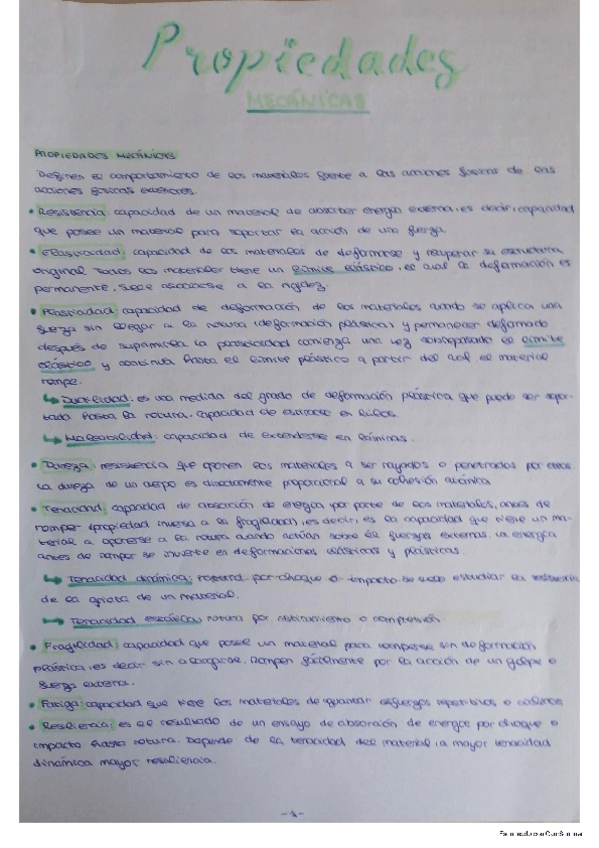 Propiedades
MECÁNICAS
PROPIEDADES MECÁNICAS
Definen el comportamiento de los materiales frente a las acciones físicas de las
acciones físicas exteriores.
• Resistencia: capacidad de un material de absorber energía externa, es decir, capacidad
que posee un material para soportar la acción de una fuerza.
• Elasticidad: capacidad de los materiales de deformarse y recuperar su estructura
original. Todos los materiales tiene un límite elástico, el cual la deformación es
permanente. Suele asociarse a la rigidez.
• Plasticidad: capacidad de deformación de los materiales cuando se aplica una
fuerza sin llegar a la rotura (deformación plástica) y permanecer deformado
después de suprimirla. La plasticidad comienza una vez sobrepasado el límite
elástico y continúa hasta el límite plástico a partir del cual el material
rompe.
↳ Ductilidad: es una medida del grado de deformación plástica que puede ser sopor-
tada hasta la rotura. Capacidad de estirarse en hilos.
↳ Maleabilidad: capacidad de extenderse en láminas.
• Dureza: resistencia que oponen los materiales a ser rayados o penetrados por otros
La dureza de un cuerpo es directamente proporcional a su cohesión atómica
• Tenacidad: capacidad de absorción de energía por parte de los materiales, antes de
romper (propiedad inversa a la fragilidad), es decir, es la capacidad que tiene un ma-
terial a oponerse a la rotura cuando actúan sobre él fuerzas externas. La energía
antes de romper se invierte en deformaciones elásticas y plásticas.
↳ Tenacidad dinámica: por choque o impacto. Se suele estudiar la
de la grieta de un material.
↳ Tenacidad estática: rotura por o compresión
• Fragilidad: capacidad que posee un material para romperse sin deformación
plástica, es decir sin alargarse. Rompen fácilmente por la acción de un golpe o
fuerza externa.
• Fatiga: capacidad que tiene los materiales de aguantar esfuerzos repetitivos o
• Resiliencia: es el resultado de un ensayo de absorción de energía por choque o
impacto hasta rotura. Depende de la tenacidad del material, a mayor tenacidad
dinámica mayor resiliencia.
-1-